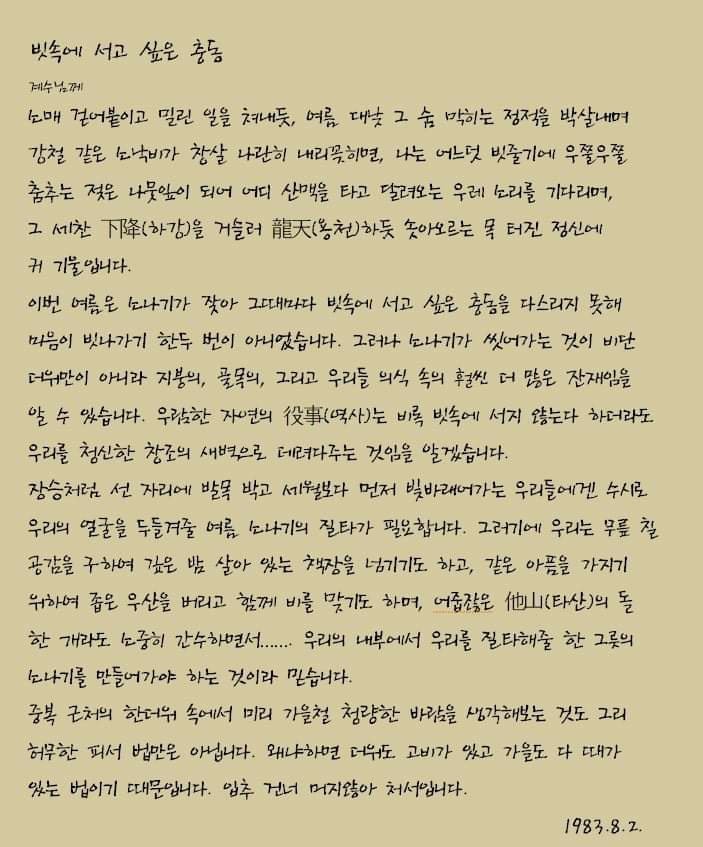 빗속에 서고 싶은 충동
계수님께
소매 걷어붙이고 밀린 일을 쳐내듯, 여름 대낮 그 숨 막히는 정적을 박살내며
강철 같은 소낙비가 창살 나란히 내리꽂히면, 나는 어느덧 빗줄기에 우쭐우쭐
춤추는 젖은 나뭇잎이 되어 어디 산맥을 타고 달려오는 우레 소리를 기다리며,
그 세찬 下降(하강)을 거슬러 龍天(용천)하듯 솟아오르는 목 터진 정신에
귀 기울입니다.
이번 여름은 소나기가 잦아 그때마다 빗속에 서고 싶은 충동을 다스리지 못해
마음이 빗나가기 한두 번이 아니었습니다. 그러나 소나기가 씻어가는 것이 비단
더위만이 아니라 지붕의, 골목의, 그리고 우리들 의식 속의 훨씬 더 많은 잔재임을
알 수 있습니다. 우람한 자연의 役事(역사)는 비록 빗속에 서지 않는다 하더라도
우리를 청신한 창조의 새벽으로 데려다주는 것임을 알겠습니다.
장승처럼 선 자리에 발목 박고 세월보다 먼저 빛바래어가는 우리들에겐 수시로
우리의 얼굴을 두들겨줄 여름 소나기의 질타가 필요합니다. 그러기에 우리는 무릎 칠
공감을 구하여 깊은 밤 살아 있는 책장을 넘기기도 하고, 같은 아픔을 가지기
위하여 좁은 우산을 버리고 함께 비를 맞기도 하며, 어줍잖은 他山(타산)의 돌
한 개라도 소중히 간수하면서....... 우리의 내부에서 우리를 질타해줄 한 그릇의
소나기를 만들어가야 하는 것이라 믿습니다.
중복 근처의 한더위 속에서 미리 가을철 청량한 바람을 생각해보는 것도 그리
허무한 피서 법만은 아닙니다. 왜냐하면 더위도 고비가 있고 가을도 다 때가
있는 법이기 때문입니다. 입추 건너 머지않아 처서입니다.
1983.8.2.